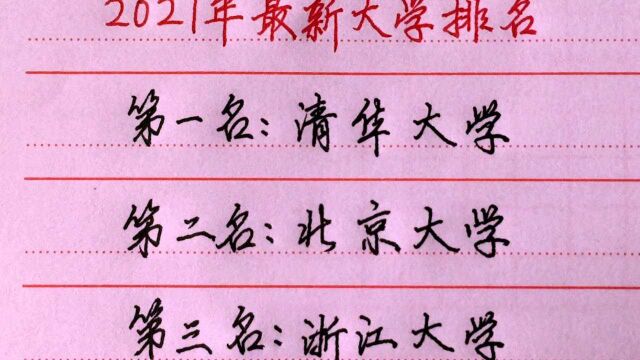 2021年最新大学排名
第一名:清华大学
第二名:北京大学
第三名:浙江大学